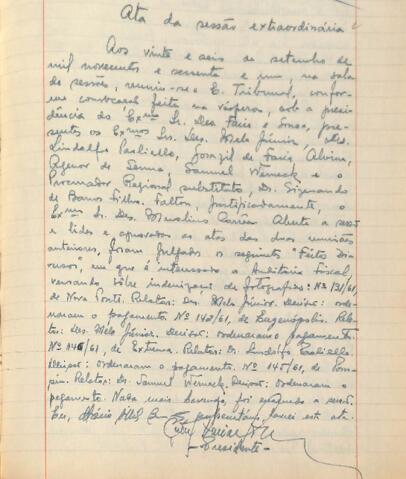 Ata da sessão extraordinária
Aos vinte e seis de setembro de
mil novecentos e sessenta e um, na sala
de sessões, reuniu-se o E. Tribunal, confor-
me convocação feita na véspera, sob a presi-
dência do Exmo Sr. Des. Faria e Sousa, pre-
sentes os Exmos Srs. Des. Melo Júnior, Drs.
Lindolfo Paoliello, de Faria Alvim,
Agenor de Senna, Samuel Werneck e o
Procurador Regional substituto, Dr. Sizenando
de Barros Filho. Faltou, justificadamente, o
Exmo Sr. Des. Corrêa. Aberta a sessão
e lidas e aprovadas as atas das duas reuniões
anteriores, foram julgados os seguintes "Feitos Di-
versos", em que é interessado a Auditoria Fiscal,
versando sôbre indenização de fotografias: Nº 131/61,
de Nova Ponte. Relator: Des. Melo Júnior. Decisão: orde-
naram o pagamento. Nº 140/61, de Eugenópolis. Rela-
tor: Des. Melo Júnior. Decisão: ordenaram o pagamento.
Nº 146/61, de Extrema. Relator: Dr. Lindolfo Paoliello.
Decisão: ordenaram o pagamento. Nº 145/61, de Pom-
péu. Relator: Dr. Samuel Werneck. Decisão: ordenaram o
pagamento. Nada mais havendo, foi encerrada a sessão.
Eu, secretário, lavrei esta ata.
- Presidente -